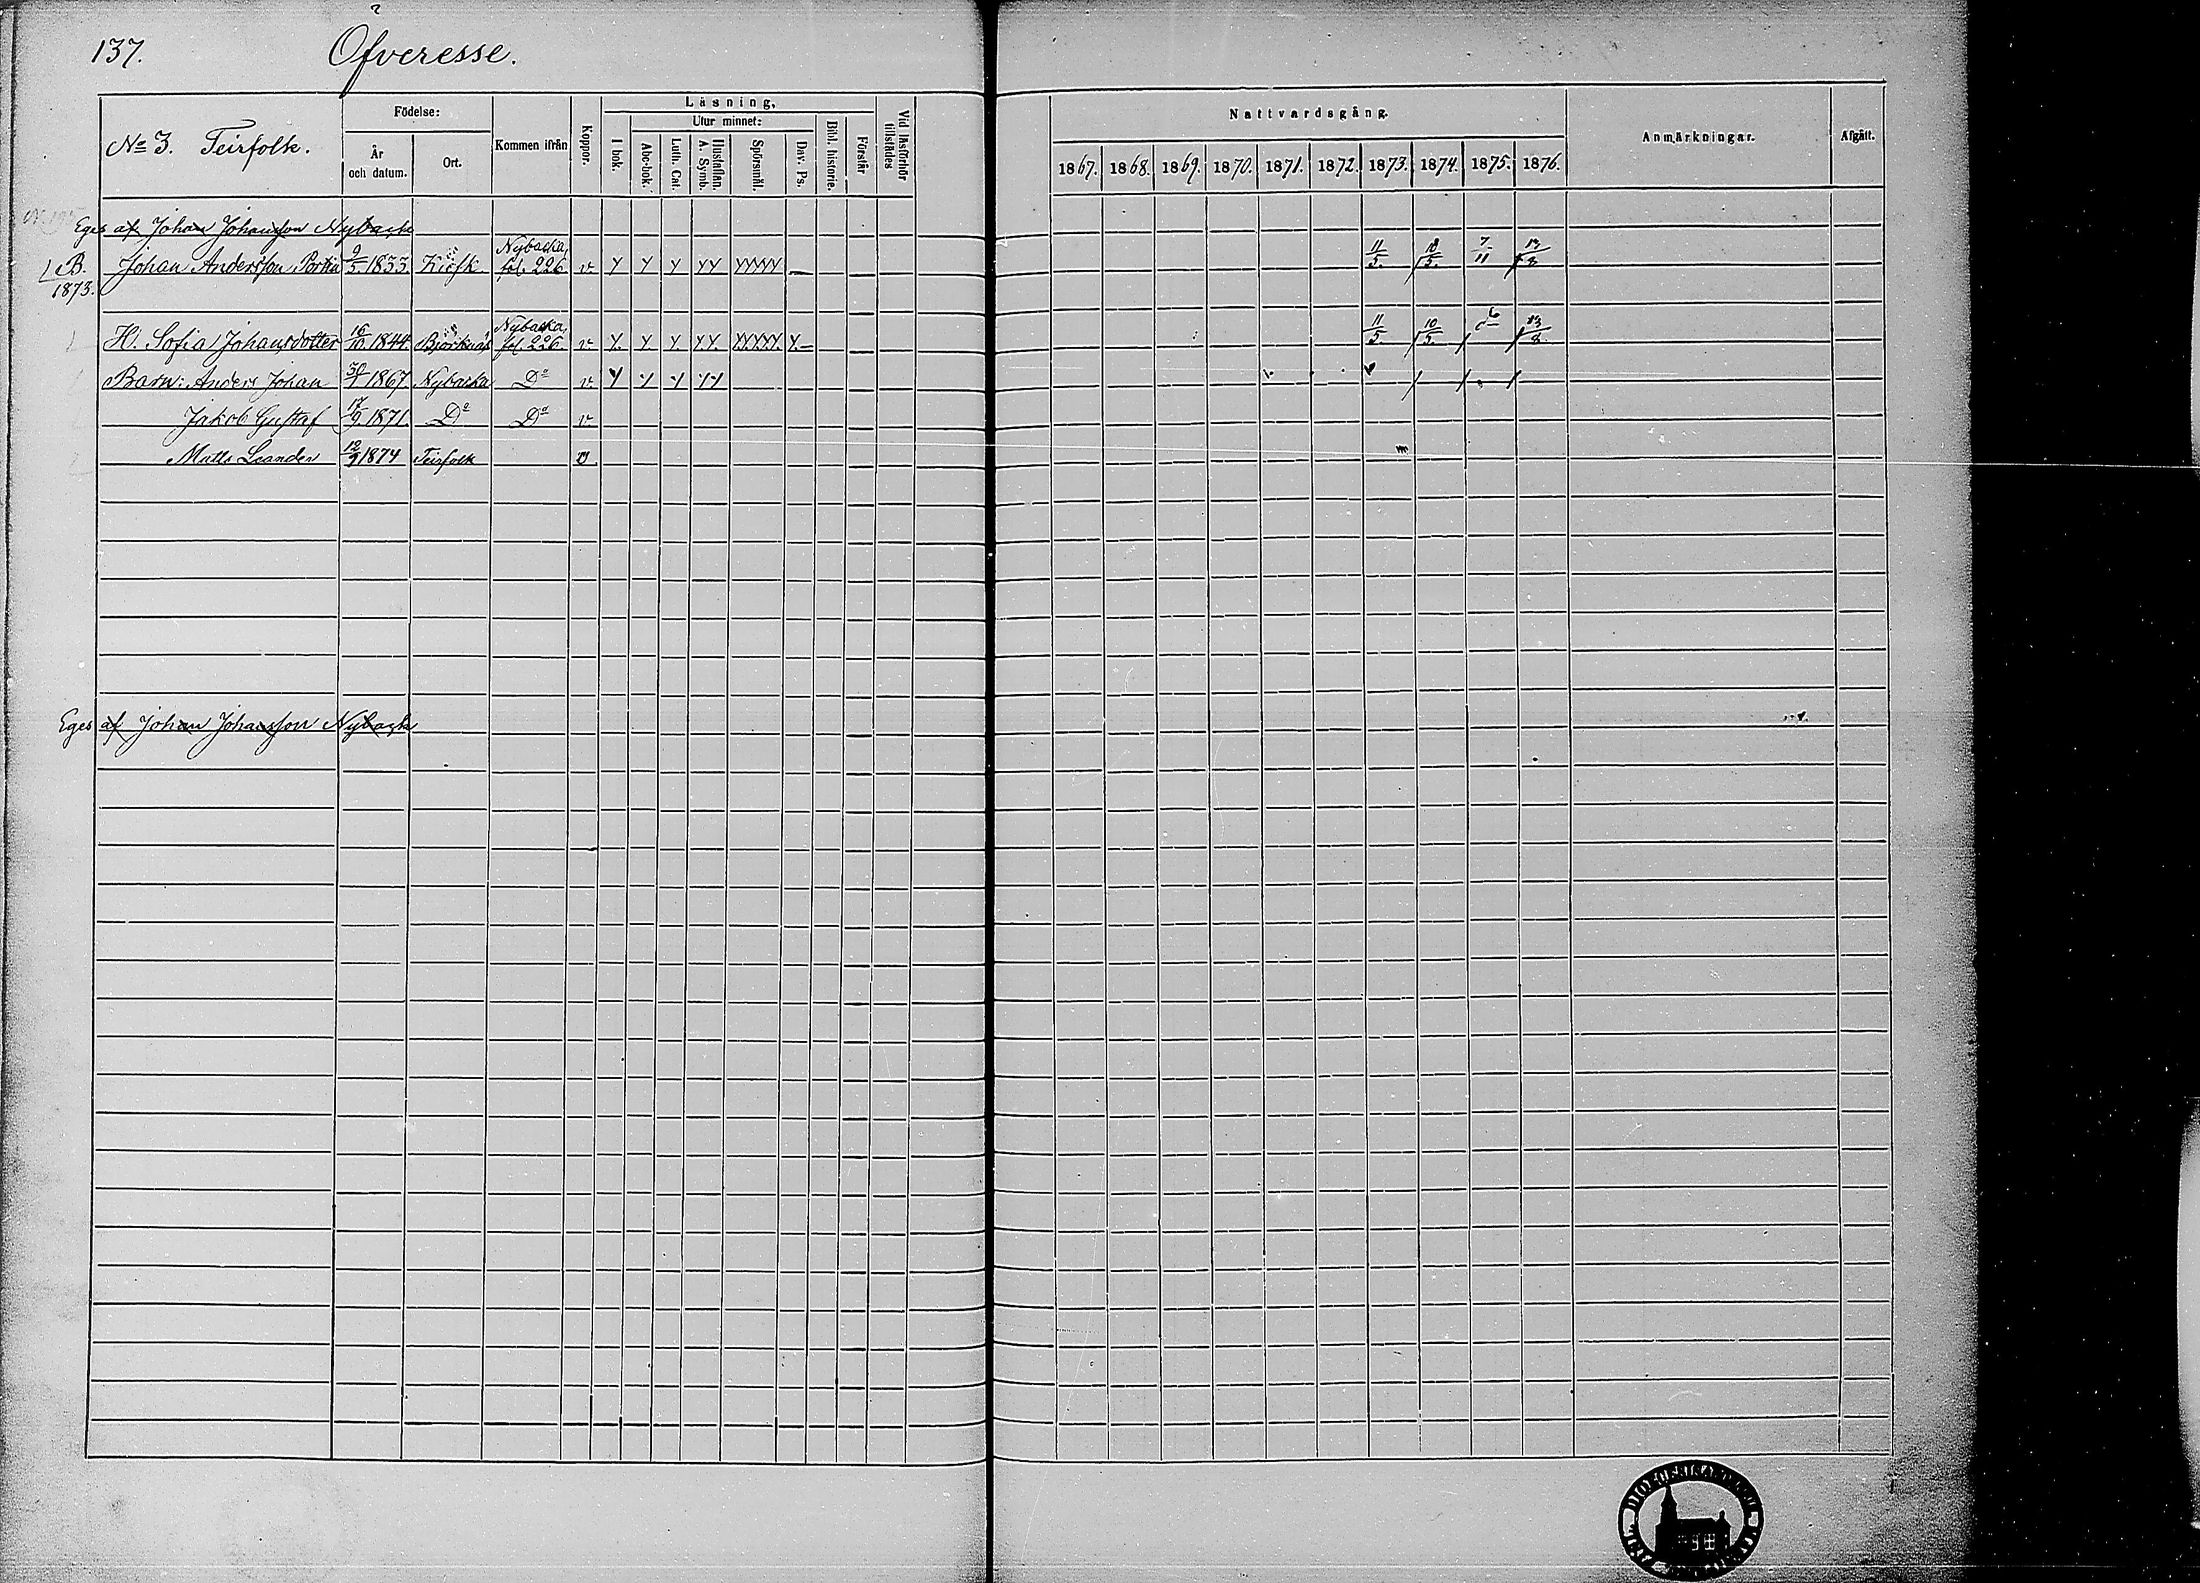 137. Öfveresse.
No 3. Teirfolk.
Födelse:
År och datum.
Ort.
Kommen ifrån
Koppor.
Läsning,
I bok.
Utur minnet:
Abc-bok.
Luth. Cat.
Hustaflan. A. Symb.
Spörsmål.
Dav. Ps.
Bibl. historie.
Förstår
Vid läsförhör tillstädes
Nattvardsgång.
1867. 1868. 1869. 1870. 1871. 1872. 1873. 1874. 1875. 1876.
Anmärkningar.
Afgått.
Eges af Johan Johansson Nybacka
B. Johan Andersson Portin 9/5 1833. Nybacka, fol. 226 v 11/5. 10/5. 7/11 13/8
1873.
H. Sofia Johansdotter 16/10 1844. Björknäs Nybacka, fol. 226. v. 11/5 10/5. 13/8.
Barn: Anders Johan 30/1 1867. Nybacka Do v
Jakob Gustaf 17/9 1871. Do Do v
Matts Leander 12/9 1874 Teirfolk v
Eges af Johan Johansson Nybacka